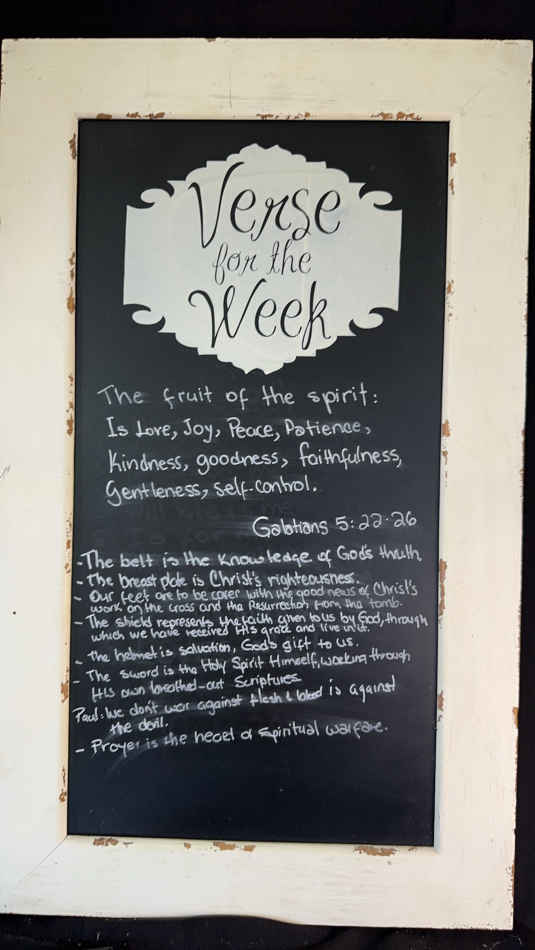 Verse
for the
Week
The fruit of the spirit:
Is Love, Joy, Peace, Patience,
Kindness, goodness, faithfulness,
Gentleness, self-control.
Galatians 5:22-26
-The belt is the knowledge of God's thruth
- The breast plate is Christ's righteousness.
- Our feet are to be cover with the good news of Christ's
work on the cross and the Resurrection from the tomb.
-The shield represents the faith given to us by God, through
which we have received His grace and live in it.
- The helmet is salvation, God's gift to us.
- The sword is the Holy Spirit Himself, working through
His own breathed-out Scriptures
Paul: We don't war against flesh & blood is against
the devil.
- Prayer is the of Spiritual warfare.